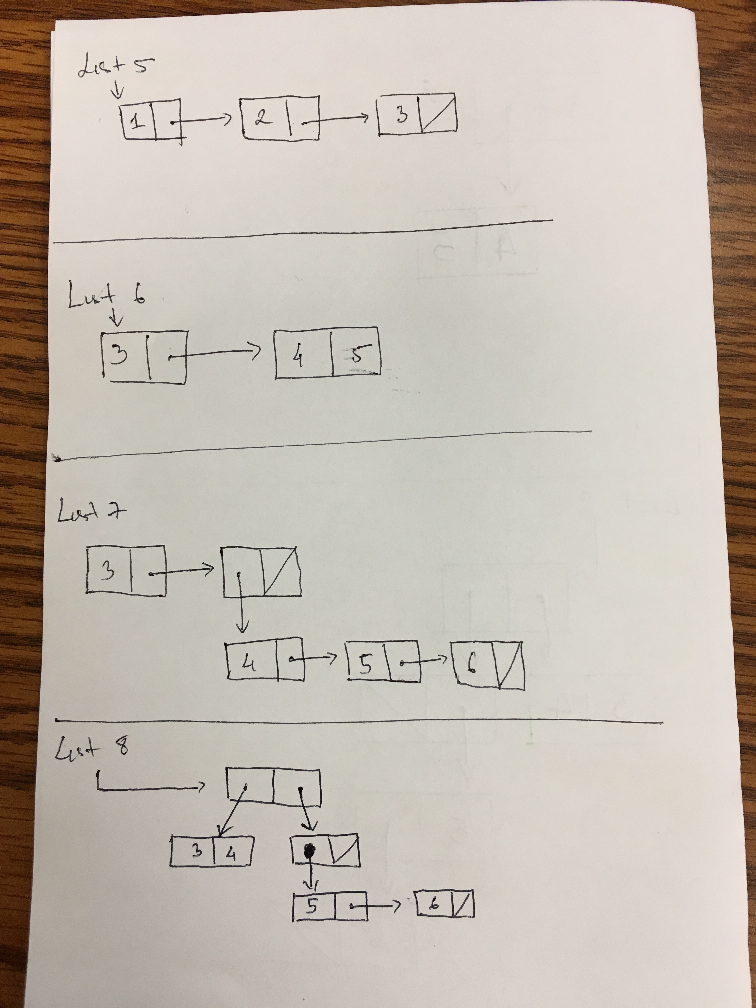 List 5
1 2 3
List 6
3 4 5
List 7
3
4 5 6
List 8
3 4
5 6